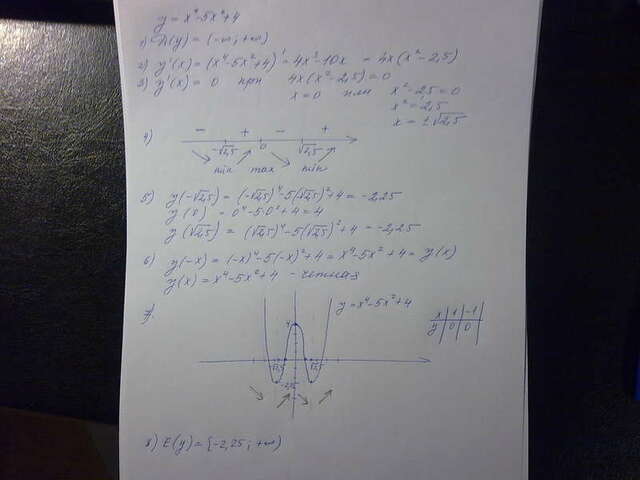 y = x⁴-5x²+4
1) D(y) = (-∞; +∞)
2) y'(x) = (x⁴-5x²+4)' = 4x³-10x = 4x(x²-2,5)
3) y'(x) = 0 при 4x(x²-2,5) = 0
x=0 или x²-2,5=0
x²=2,5
x = ±√2,5
4) - + - +
-√2,5 0 √2,5
min max min
5) y(-√2,5) = (-√2,5)⁴-5(-√2,5)²+4 = -2,25
y(0) = 0⁴-5·0²+4 = 4
y(√2,5) = (√2,5)⁴-5(√2,5)²+4 = -2,25
6) y(-x) = (-x)⁴-5(-x)²+4 = x⁴-5x²+4 = y(x)
y(x) = x⁴-5x²+4 - четная
7) y=x⁴-5x²+4
x 1 -1
y 0 0
4
-√2,5 √2,5
-2,25
8) E(y) = [-2,25; +∞)